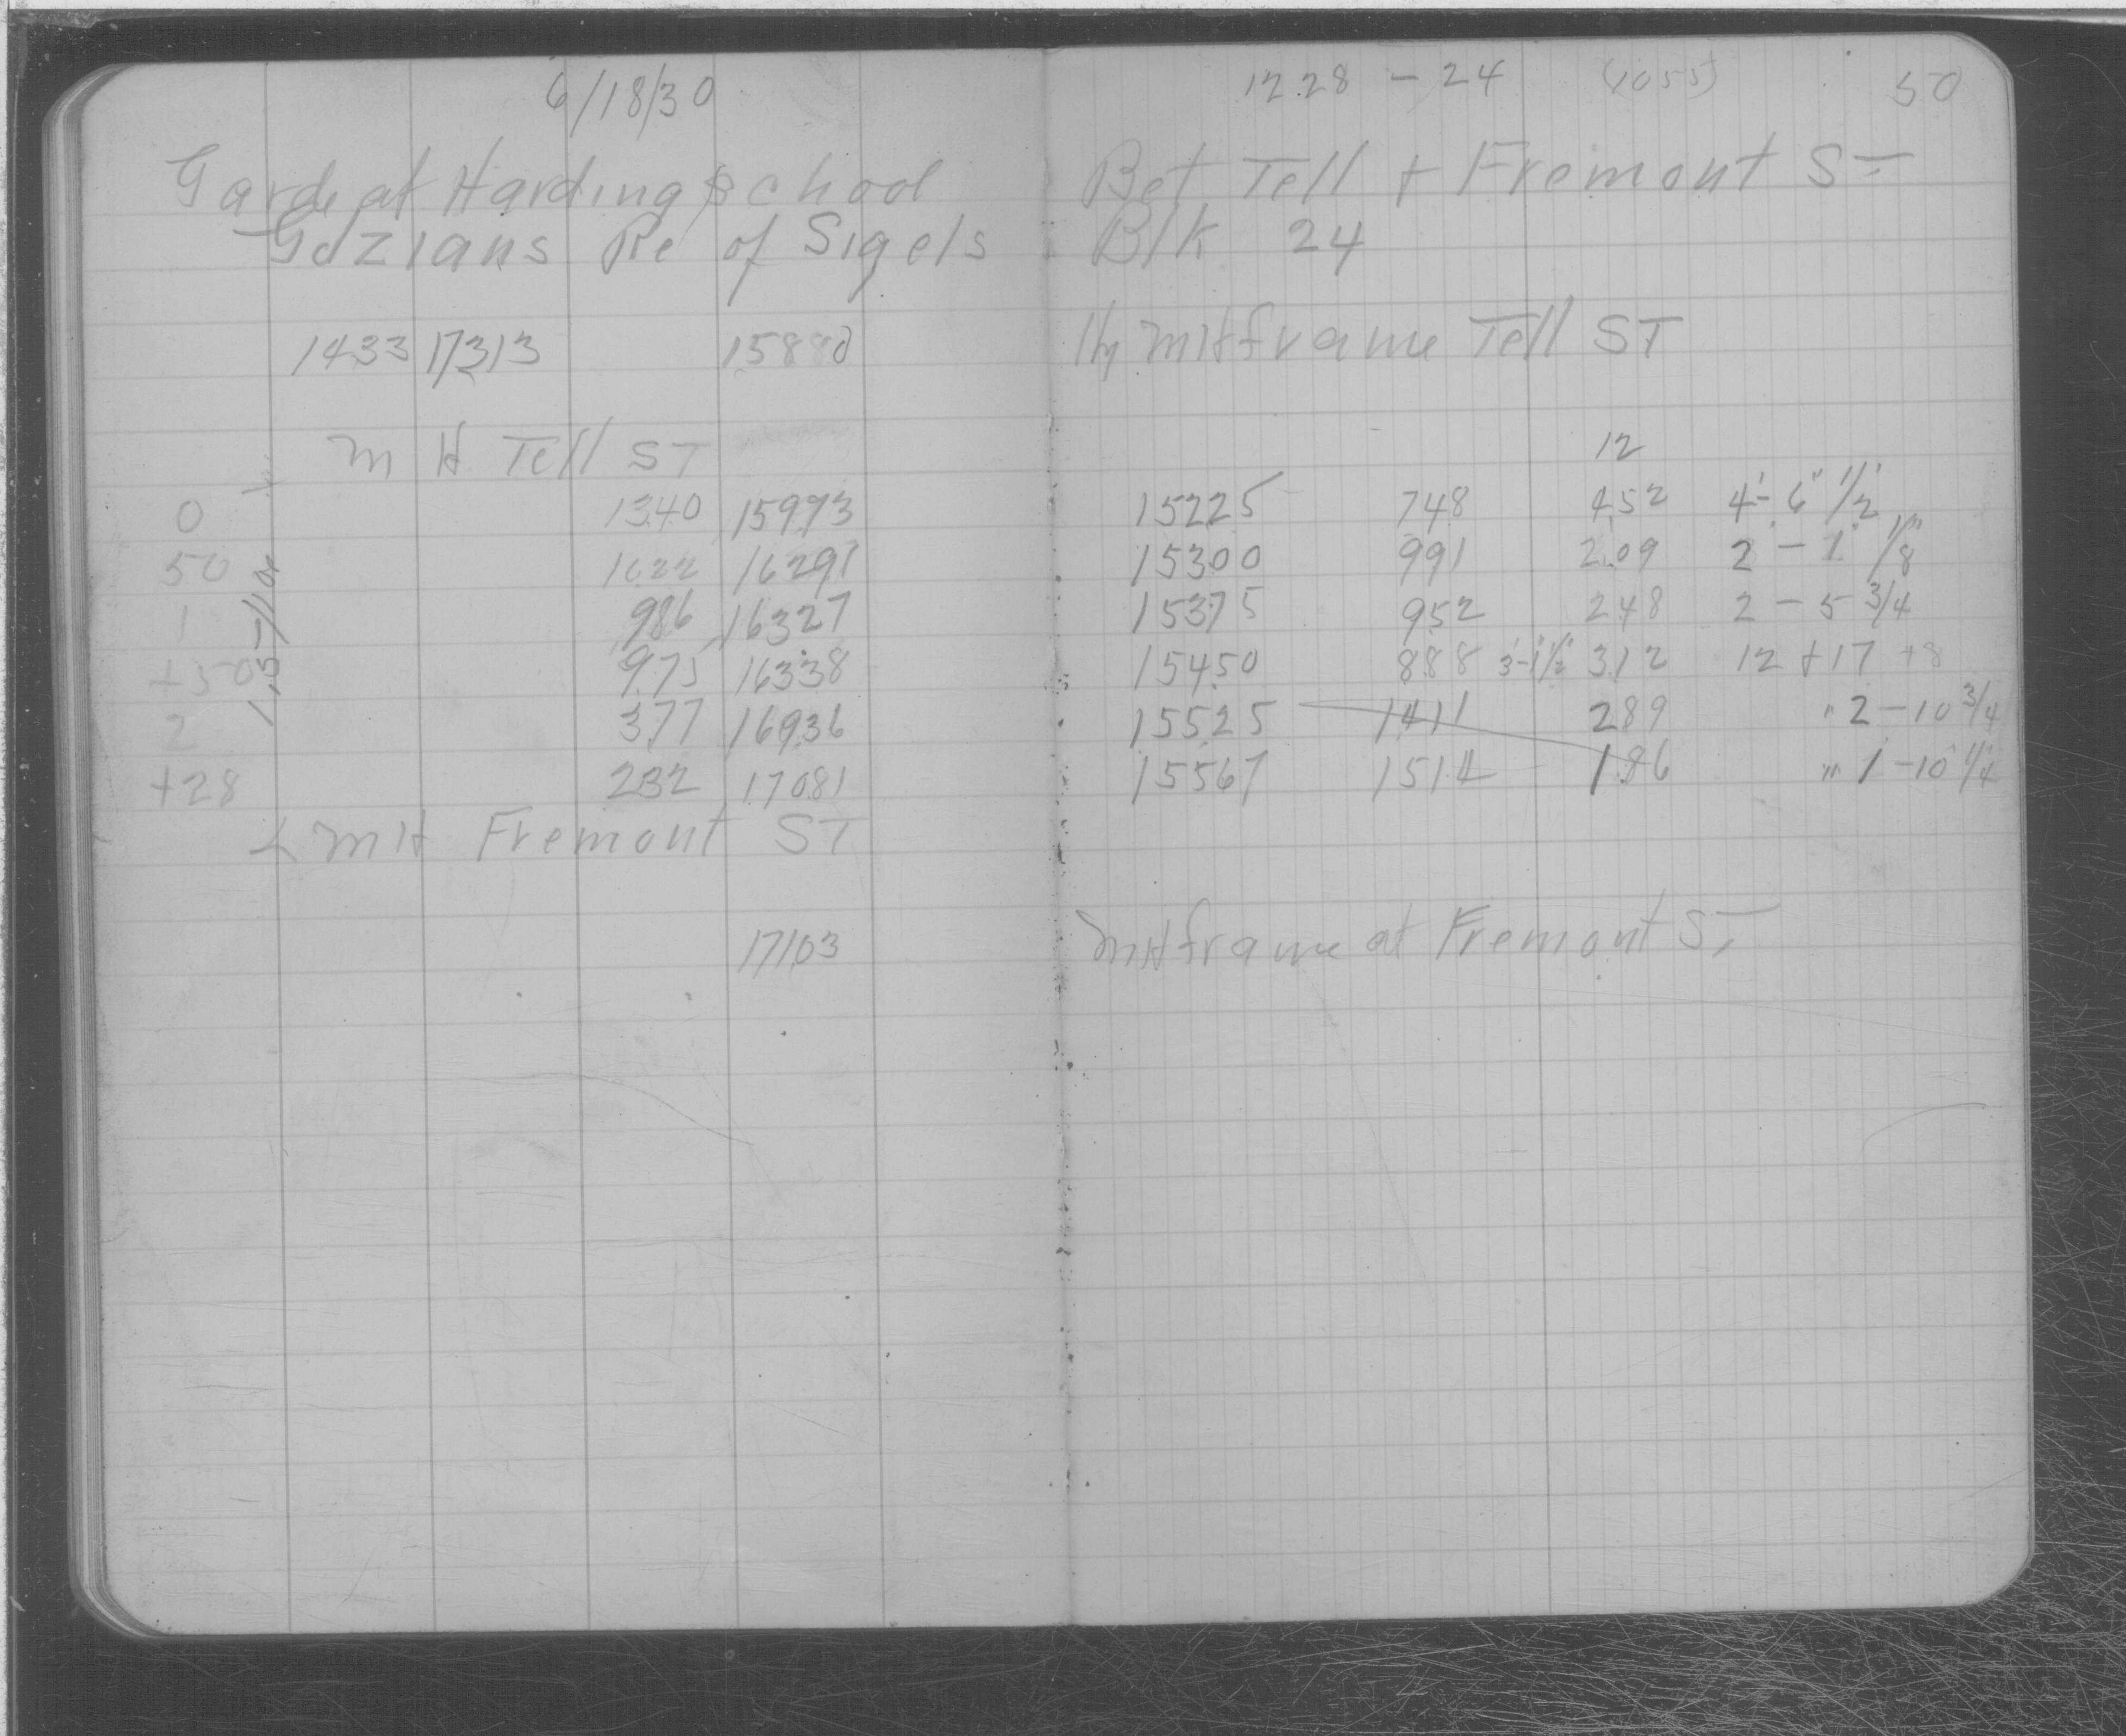 6/18/30
Garde at Harding school
Gozians Re of Sigels
1433 17313 15880
M H Tell ST
0 1340 15973
50 1022 16291
1 986 16327
+50 975 16338
2 377 16936
+28 232 17081
MH Fremont ST
17103
1228 - 24 (1055) 50
Bet Tell + Fremont ST
Blk 24
MH frame Tell ST
12
15225 748 452 4'-6" 1/2"
15300 991 209 2 - 1" 1/8"
15375 952 248 2 - 5 3/4
15450 888 3'-1 1/2" 312 12 + 17 +8
15525 1411 289 " 2 - 10 3/4
15567 1514 186 " 1 - 10 1/4"
MH frame at Fremont ST